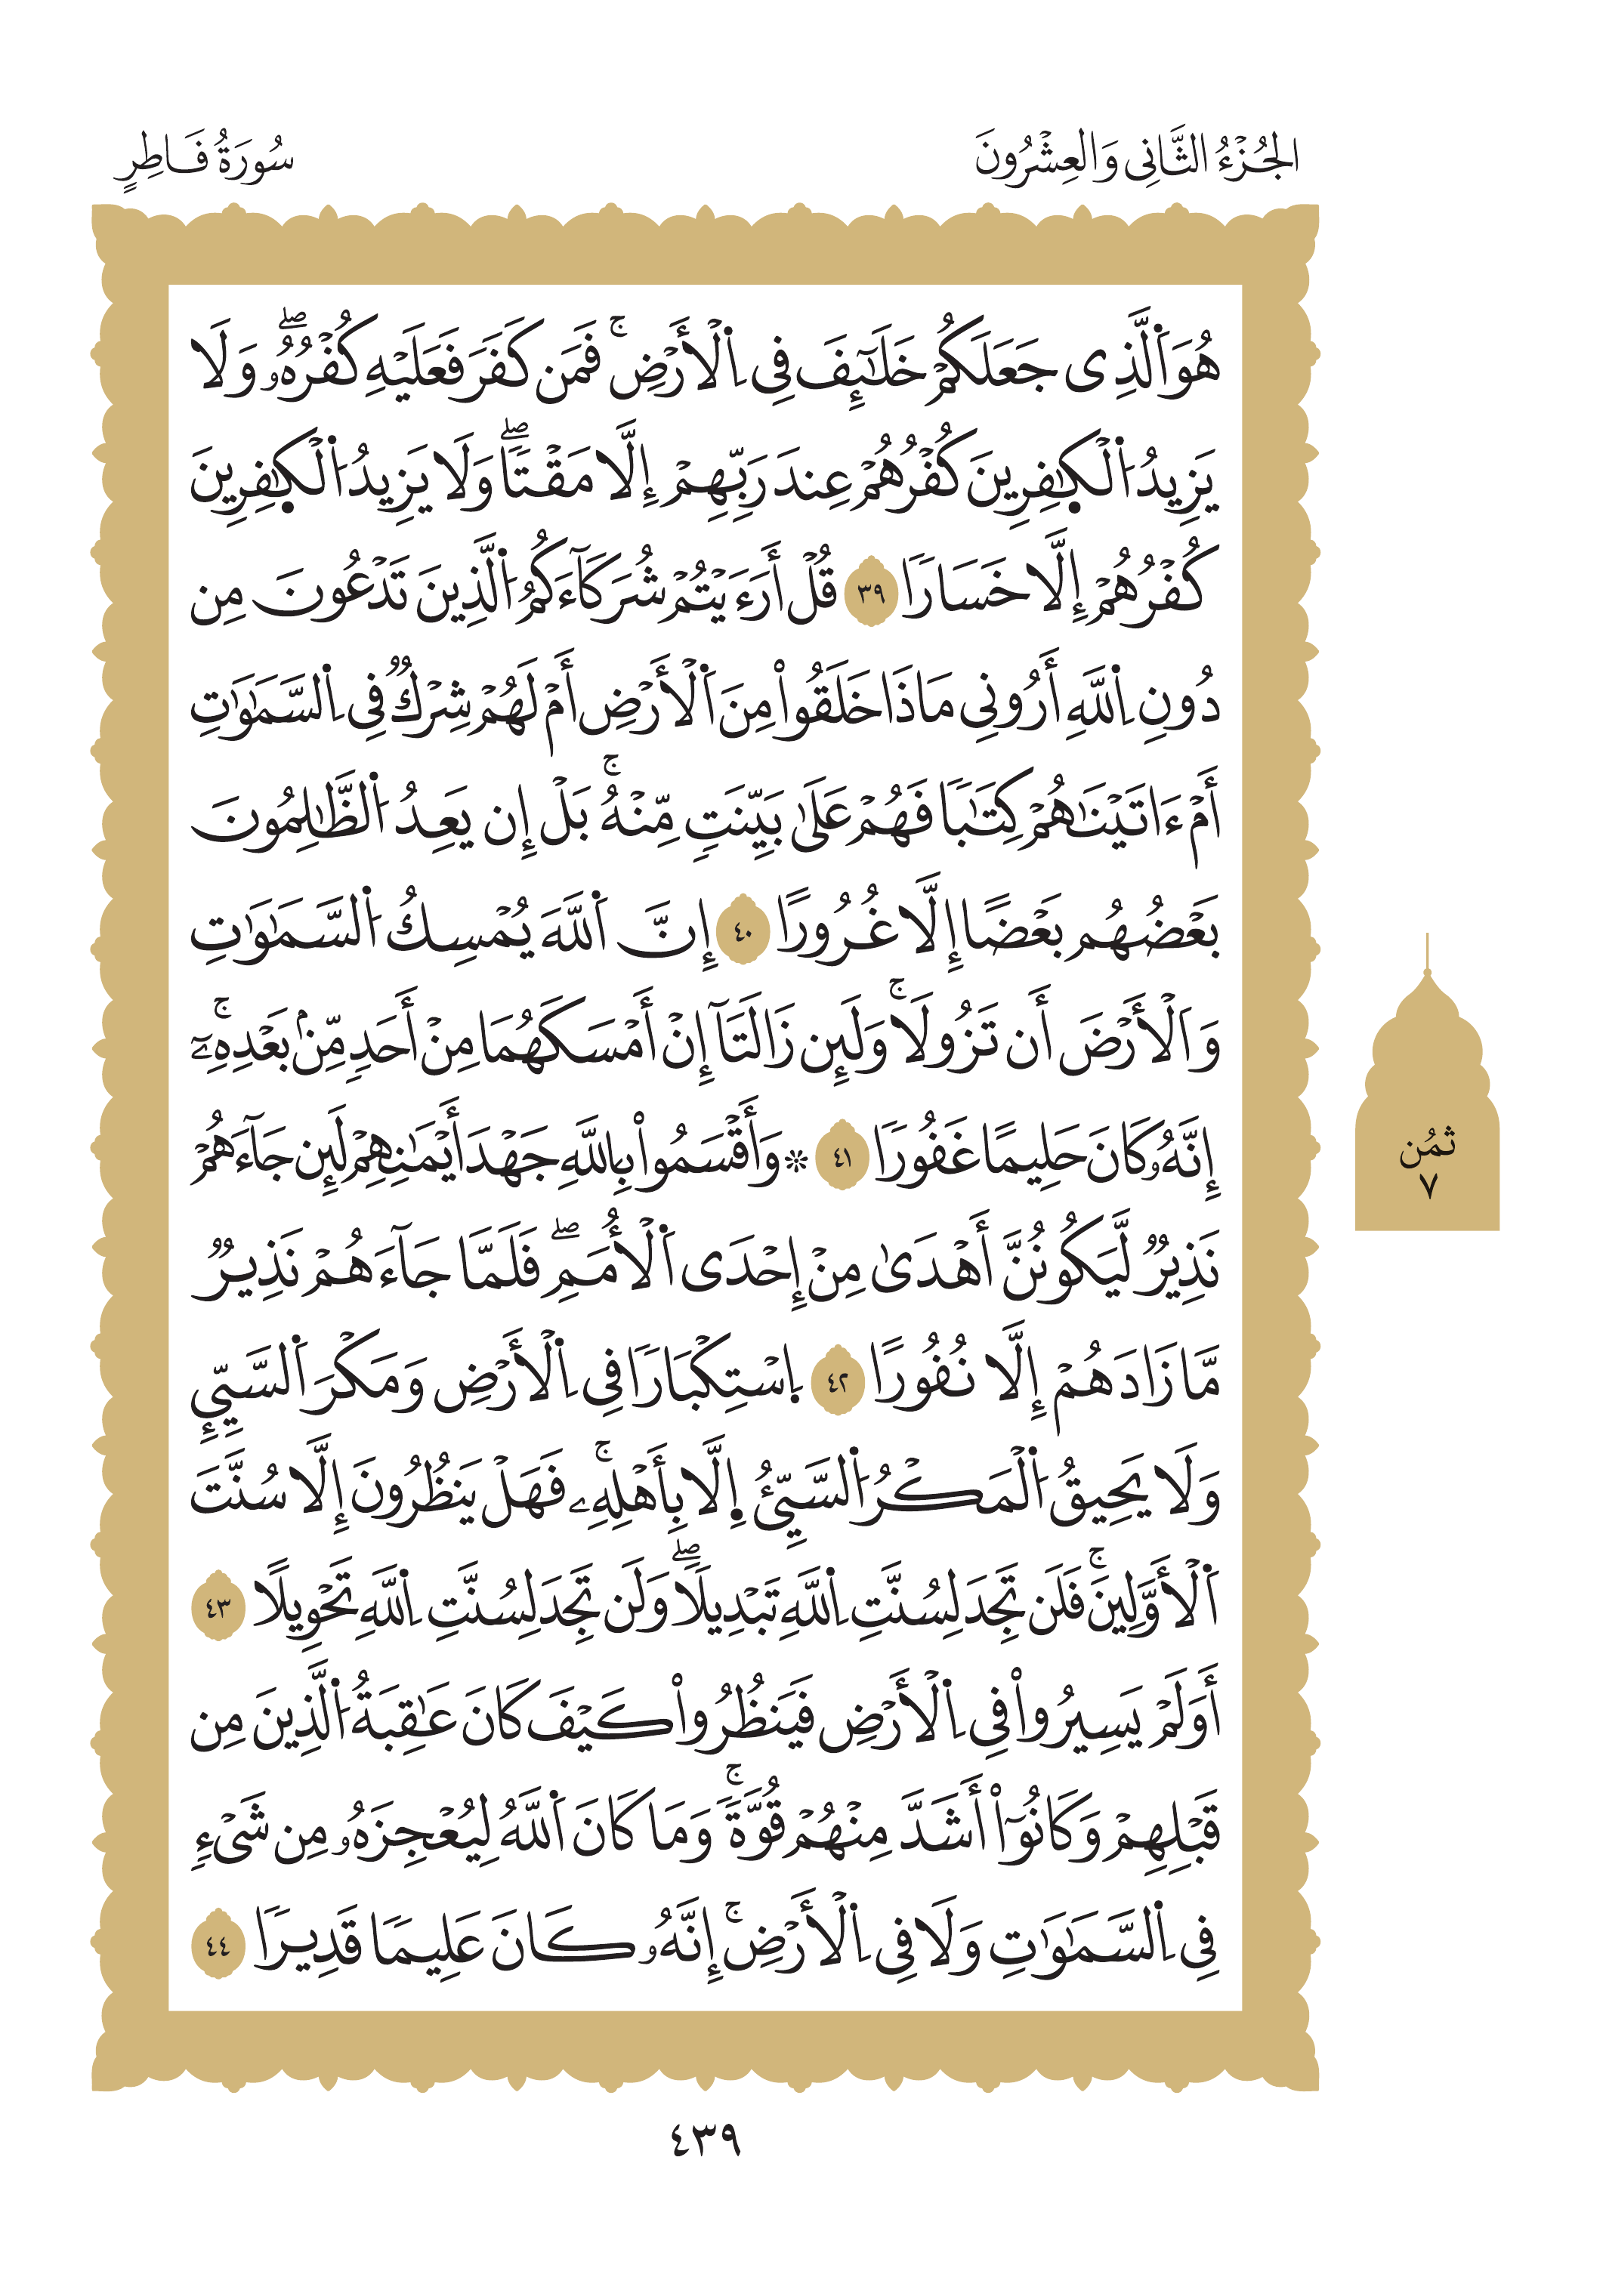 الجُزْءُ الثَّانِى وَالعِشْرُونَ
سُورَةُ فَاطِرٍ
هُوَ اَ۬لَّذِى جَعَلَكُمْ خَلَٰٓئِفَ فِى اِ۬لْأَرْضِۚ فَمَن كَفَرَ فَعَلَيْهِ كُفْرُهُۥۖ وَلَا
يَزِيدُ اُ۬لْكٰٜفِرِينَ كُفْرُهُمْ عِندَ رَبِّهِمْ إِلَّا مَقْتٗاۖ وَلَا يَزِيدُ اُ۬لْكٰٜفِرِينَ
كُفْرُهُمْ إِلَّا خَسَارٗا ٣٩ قُلْ أَرَءَيْتُمْ شُرَكَآءَكُمُ اُ۬لَّذِينَ تَدْعُونَ مِن
دُونِ اِ۬للَّهِ أَرُونِى مَاذَا خَلَقُواْ مِنَ اَ۬لْأَرْضِ أَمْ لَهُمْ شِرْكٞ فِى اِ۬لسَّمَٰوَٰتِ
أَمْ ءَاتَيْنَٰهُمْ كِتَٰبٗا فَهُمْ عَلَىٰ بَيِّنَتٖ مِّنْهُۚ بَلْ إِن يَعِدُ اُ۬لظَّٰلِمُونَ
بَعْضُهُم بَعْضًا إِلَّا غُرُورًا ٤٠ إِنَّ اَ۬للَّهَ يُمْسِكُ اُ۬لسَّمَٰوَٰتِ
وَالْأَرْضَ أَن تَزُولَاۚ وَلَئِن زَالَتَآ إِنْ أَمْسَكَهُمَا مِنْ أَحَدٖ مِّنۢ بَعْدِهِۦٓۚ
إِنَّهُۥ كَانَ حَلِيمًا غَفُورٗا ٤١ ۞ وَأَقْسَمُواْ بِاللَّهِ جَهْدَ أَيْمَٰنِهِمْ لَئِن جَآءَهُمْ
نَذِيرٞ لَّيَكُونُنَّ أَهْدَىٰ مِنْ إِحْدَى اَ۬لْأُمَمِۖ فَلَمَّا جَآءَهُمْ نَذِيرٞ
مَّا زَادَهُمْ إِلَّا نُفُورًا ٤٢ اِ۪سْتِكْبَارٗا فِى اِ۬لْأَرْضِ وَمَكْرَ اَ۬لسَّيِّيِٕ
وَلَا يَحِيقُ اُ۬لْمَكْرُ اُ۬لسَّيِّئُ اِ۪لَّا بِأَهْلِهِۦۚ فَهَلْ يَنظُرُونَ إِلَّا سُنَّتَ
اَ۬لْأَوَّلِينَۚ فَلَن تَجِدَ لِسُنَّتِ اِ۬للَّهِ تَبْدِيلٗاۖ وَلَن تَجِدَ لِسُنَّتِ اِ۬للَّهِ تَحْوِيلًا ٤٣
أَوَلَمْ يَسِيرُواْ فِى اِ۬لْأَرْضِ فَيَنظُرُواْ كَيْفَ كَانَ عَٰقِبَةُ اُ۬لَّذِينَ مِن
قَبْلِهِمْ وَكَانُوٓاْ أَشَدَّ مِنْهُمْ قُوَّةٗۚ وَمَا كَانَ اَ۬للَّهُ لِيُعْجِزَهُۥ مِن شَىْءٖ
فِى اِ۬لسَّمَٰوَٰتِ وَلَا فِى اِ۬لْأَرْضِۚ إِنَّهُۥ كَانَ عَلِيمٗا قَدِيرٗا ٤٤
ثُمُن
٧
٤٣٩